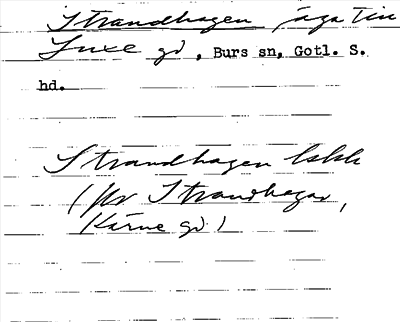 Strandhagen, äga till
Luxe gd, Burs sn, Gotl. S.
hd.
Strandhagen
(för Strandhagar,
Kärne gd)